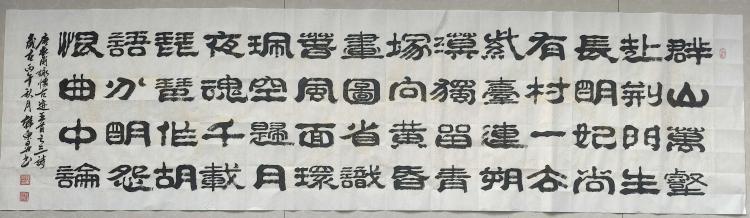 群山萬壑
赴荊門生
長明妃尚
有村一去
紫臺連朔
漠獨留青
塚向黃昏
畫圖省識
春風面環
珮空歸月
夜魂千載
琵琶作胡
語分明怨
恨曲中論
唐杜甫詠懷古迹五首之三詩
歲在丙午秋月书